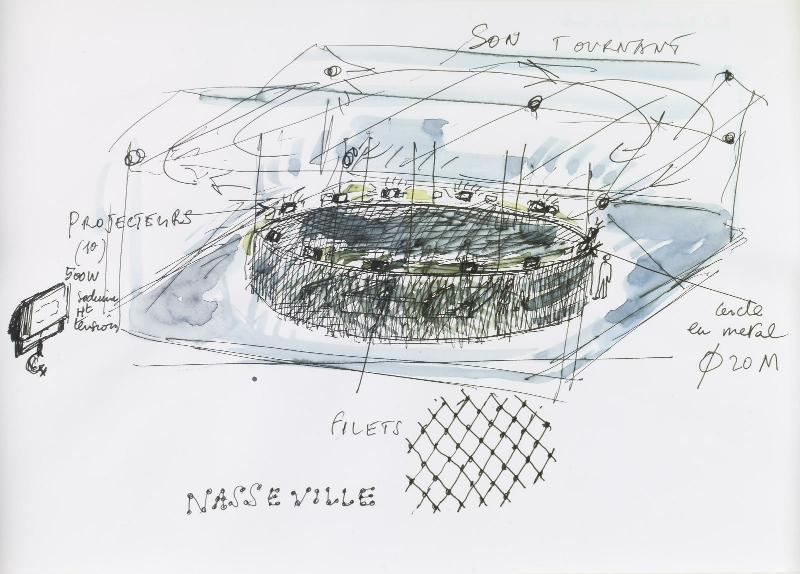 SON TOURNANT
PROJECTEURS
(10)
500W
Sodium
Ht
tension
cercle
en metal
Ø 20 M
FILETS
NASSEVILLE